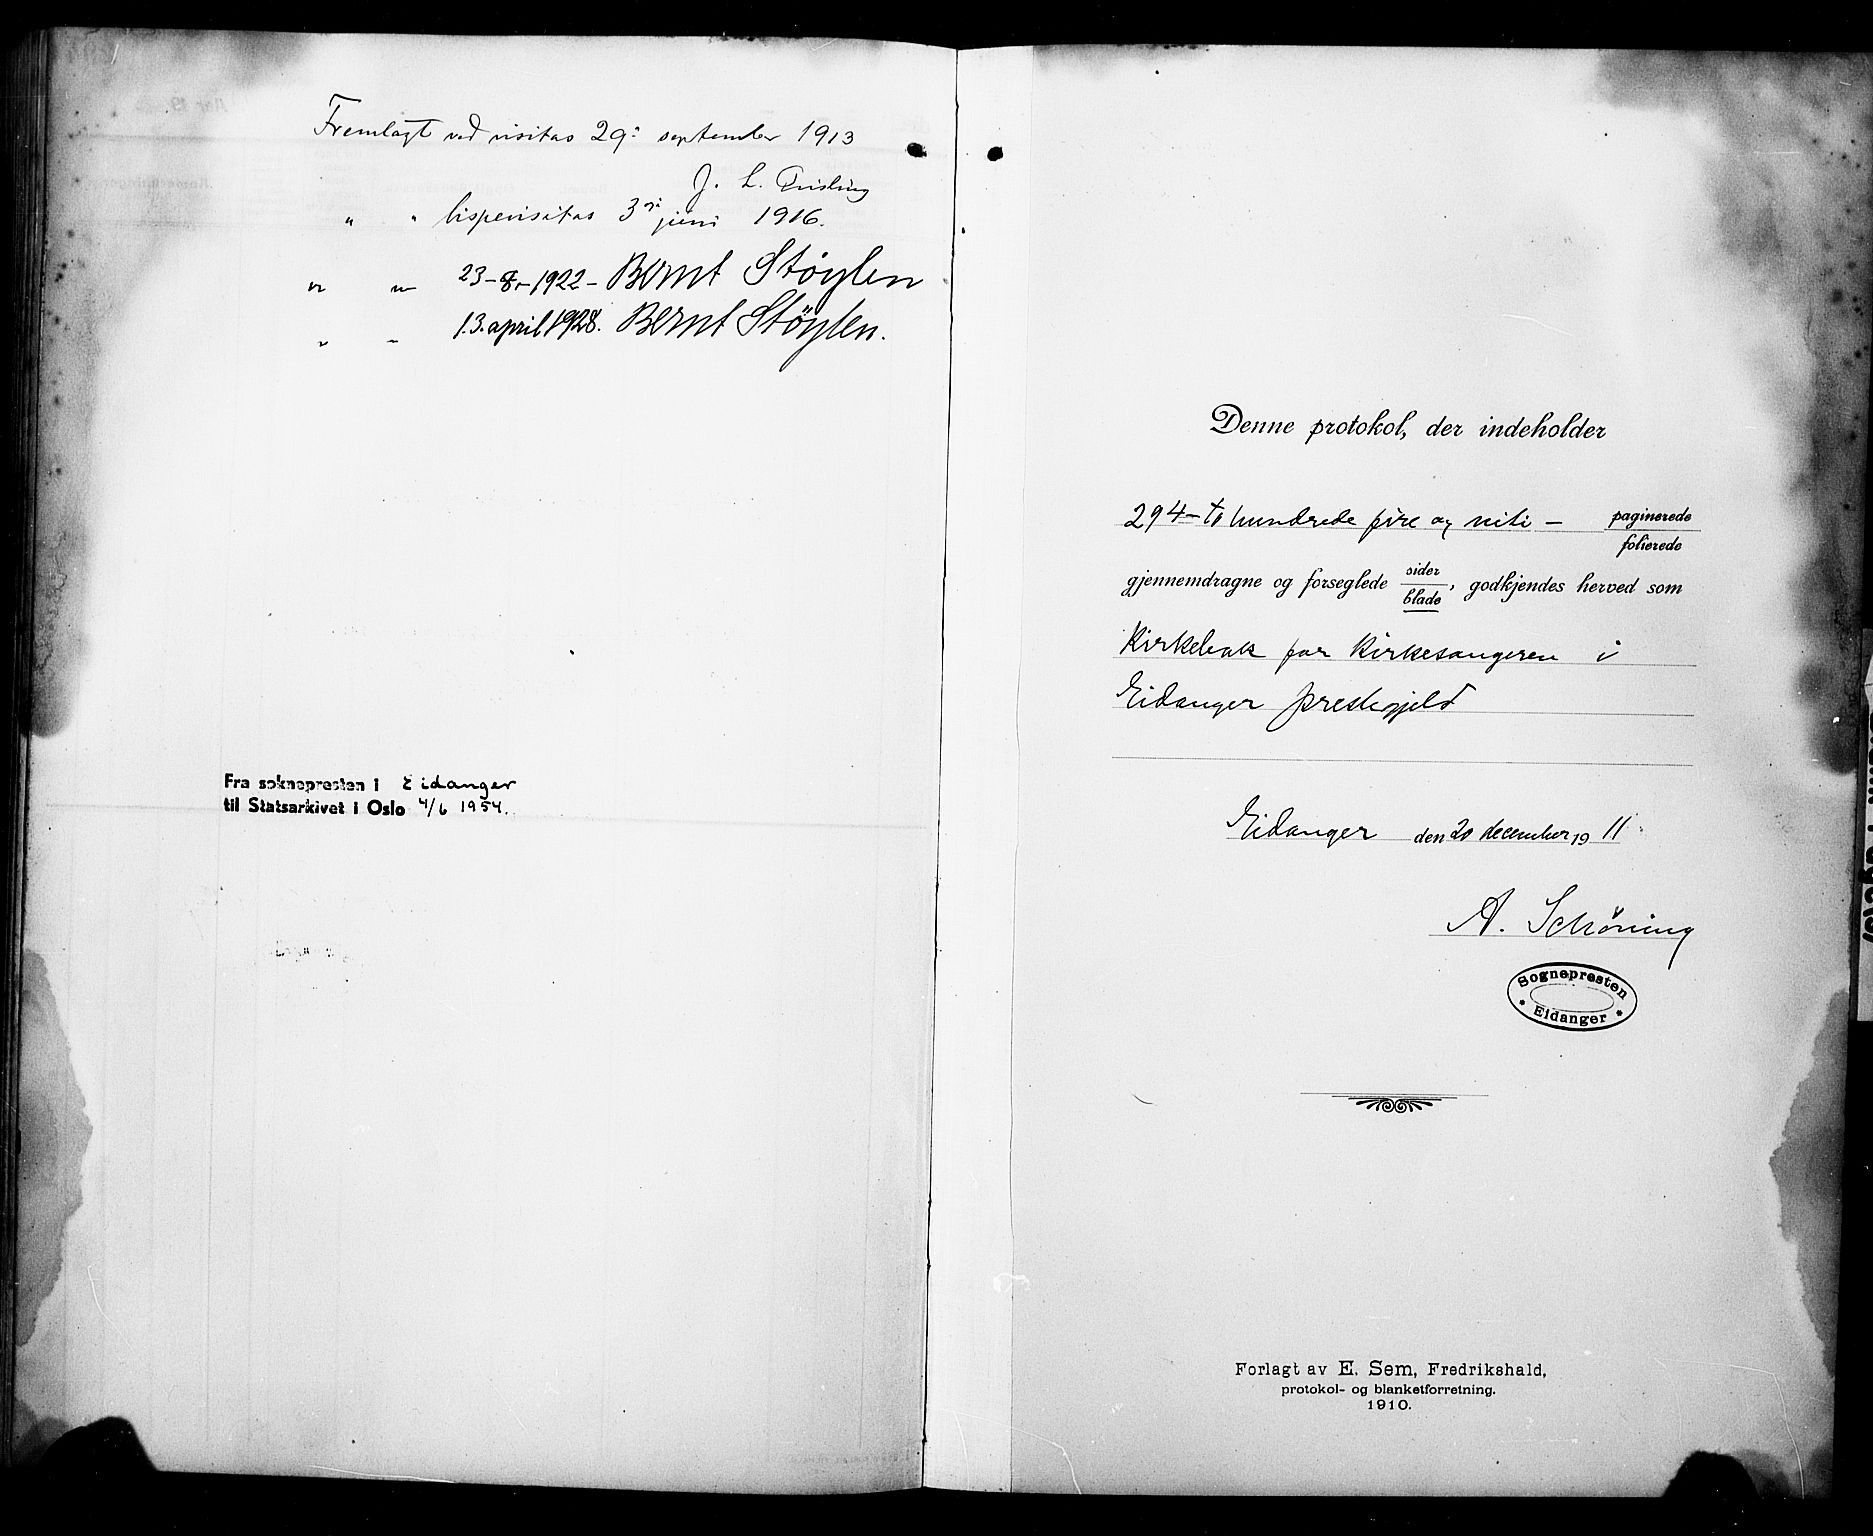 Fremlagt ved visitas 29: september 1913
J. L. Quisling
" " bispevisitas 3di juni 1916.
" " 23-8-1922 - Bernt Støylen
" " 13. april 1928. Bernt Støylen.
Fra soknepresten i Eidanger
til Statsarkivet i Oslo 4/6 1954.
Denne protokol, der indeholder
294 - to hundrede fire og niti - paginerede
folierede
gjennemdragne og forseglede sider
blade, godkjendes herved som
Kirkebok for Kirkesangeren i
Eidanger prestegjeld
Eidanger den 20 december 1911
A. Schöning
Sognepresten
* Eidanger *
Forlagt av E. Sem, Fredrikshald,
protokol- og blanketforretning.
1910.